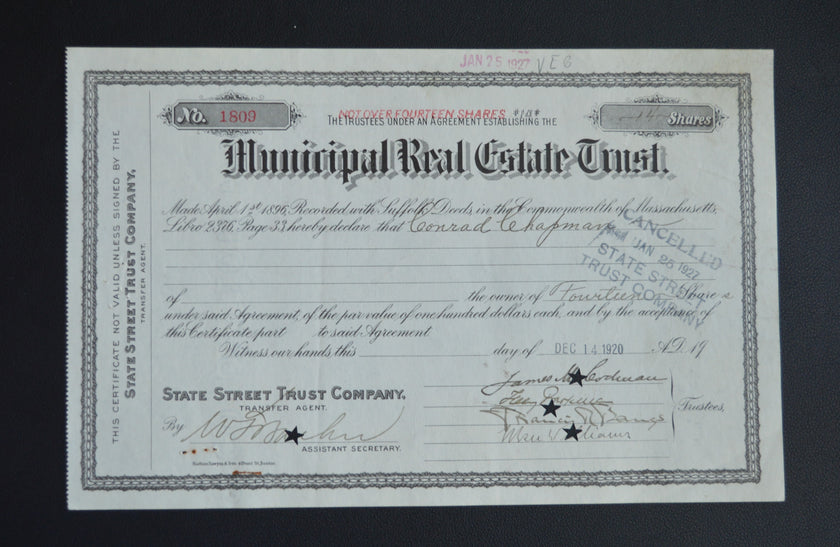 JAN 25 1927 VEG
No. 1809
NOT OVER FOURTEEN SHARES $14$
-14- Shares
THE TRUSTEES UNDER AN AGREEMENT ESTABLISHING THE
Municipal Real Estate Trust.
Made April 1st 1896, Recorded with Suffolk Deeds, in the Commonwealth of Massachusetts,
Libro 2376, Page 33, hereby declare that Conrad Chapman
of the owner of Fourteen Shares
under said Agreement, of the par value of one hundred dollars each, and by the acceptance of
this Certificate part to said Agreement
Witness our hands this day of DEC 14 1920 A.D. 19
CANCELLED
JAN 25 1927
STATE STREET
TRUST COMPANY
STATE STREET TRUST COMPANY,
TRANSFER AGENT.
By
ASSISTANT SECRETARY.
James M. Codman
Trustees,
THIS CERTIFICATE NOT VALID UNLESS SIGNED BY THE
STATE STREET TRUST COMPANY,
TRANSFER AGENT.